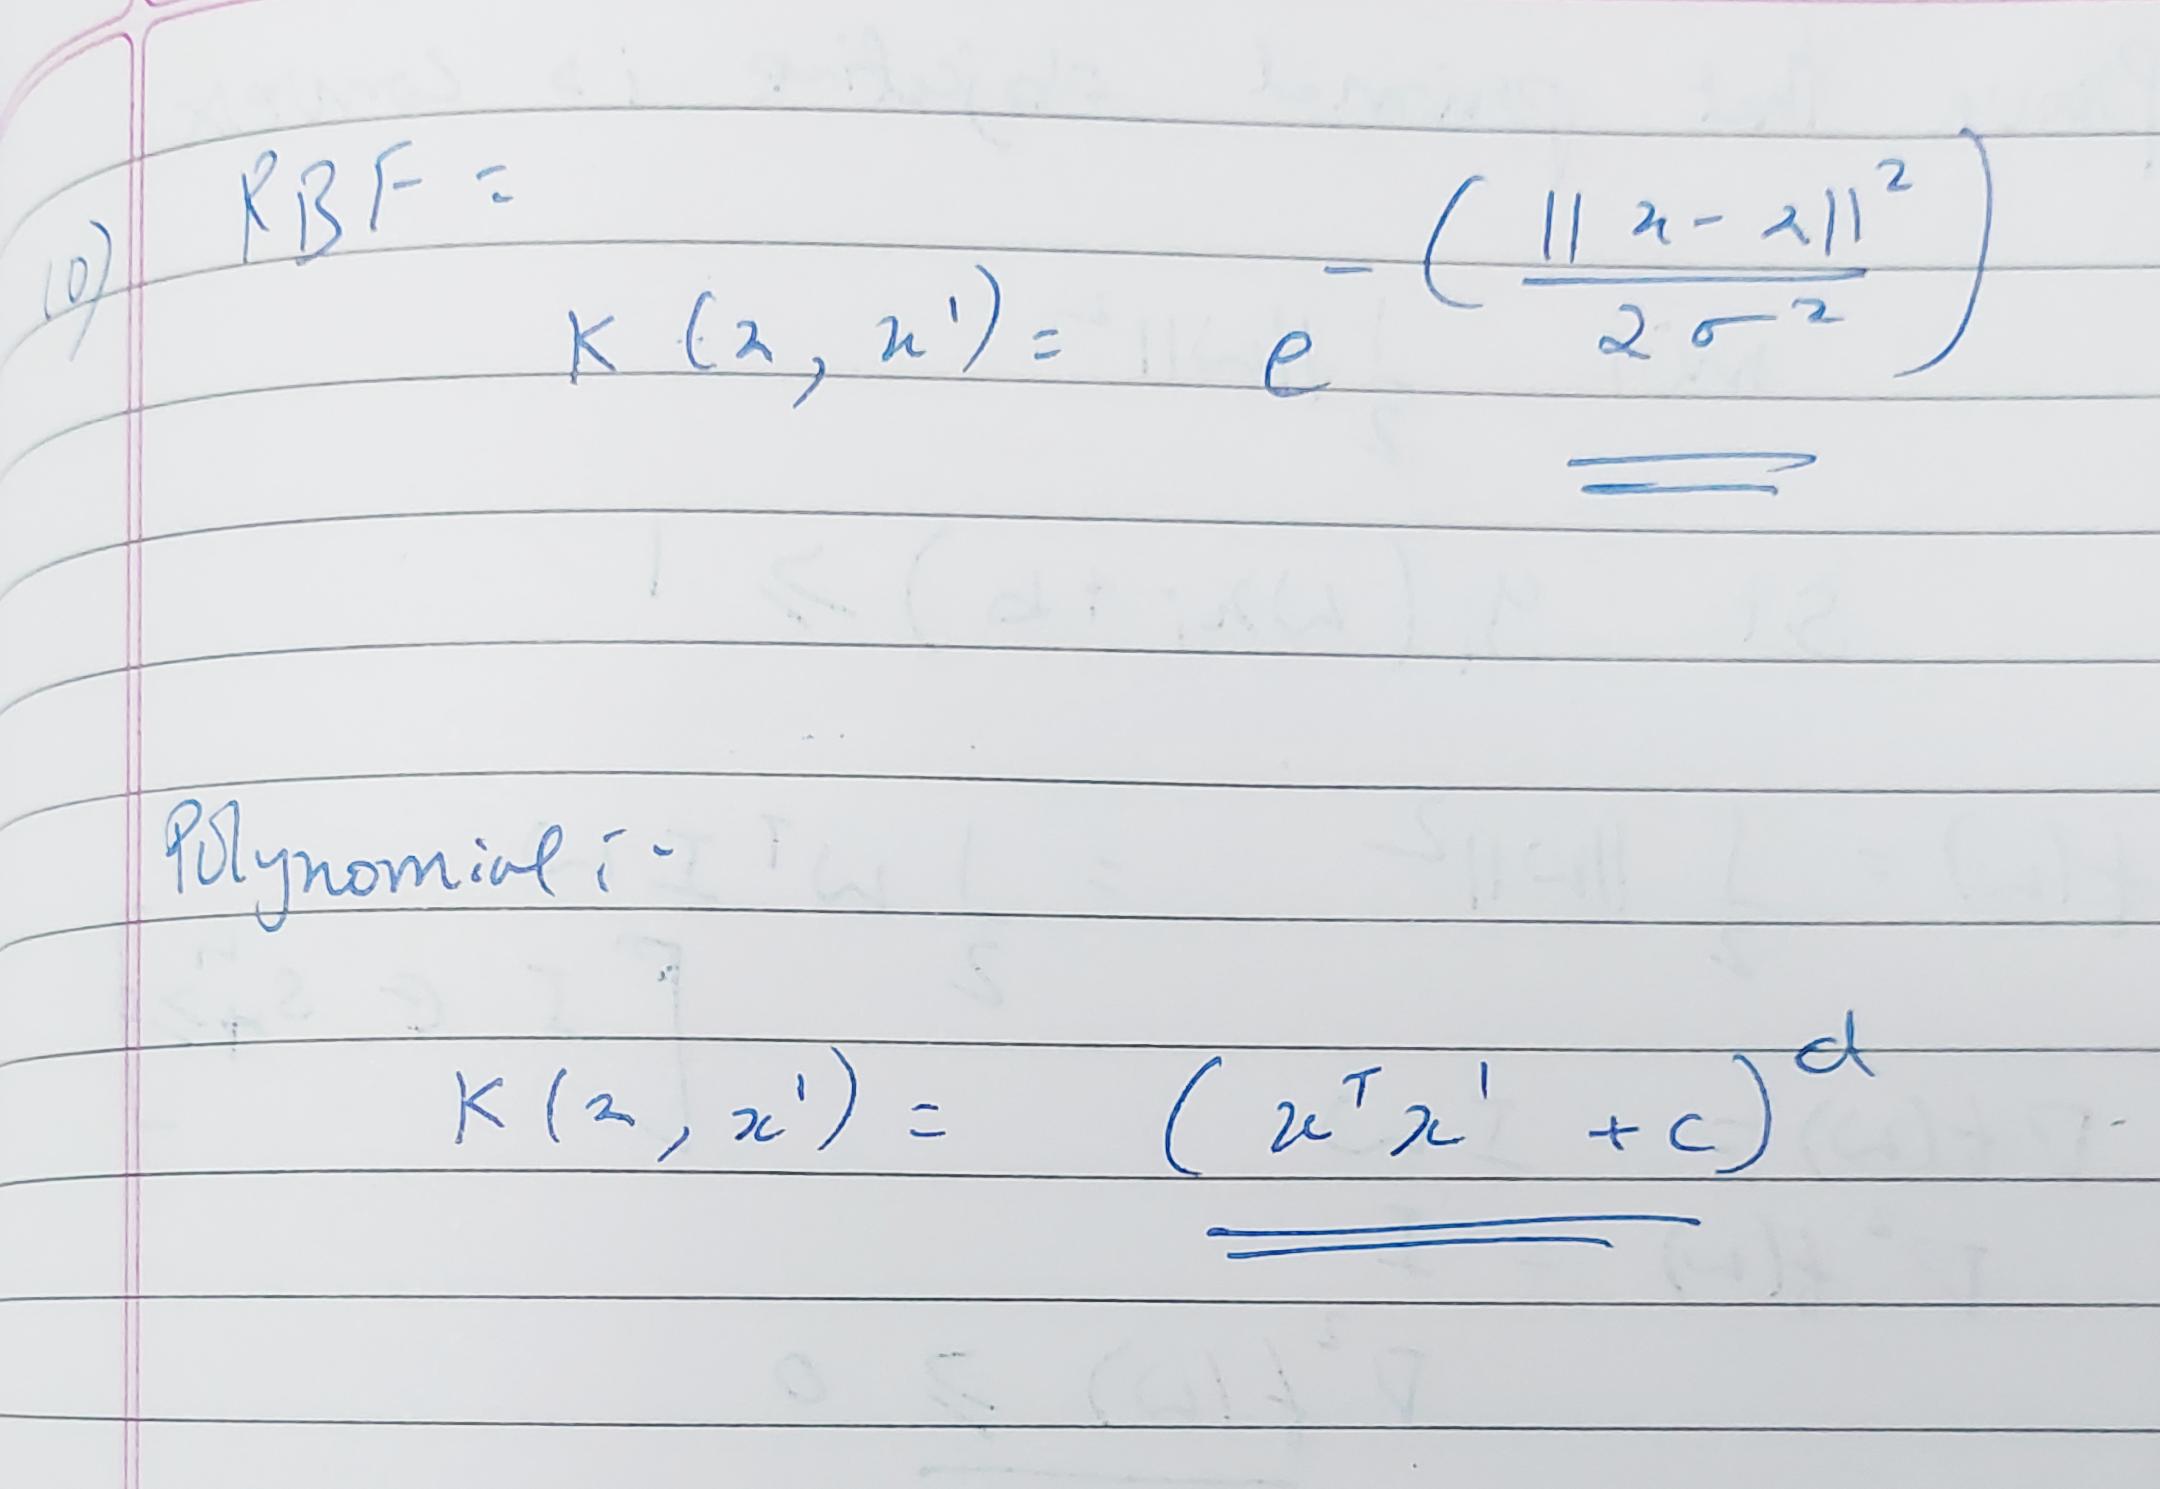 10)
RBF =
K (x, x') = e^-( ||x - x||^2 / 2σ^2 )
Polynomial :-
K (x, x') = ( x^T x' + c )^d